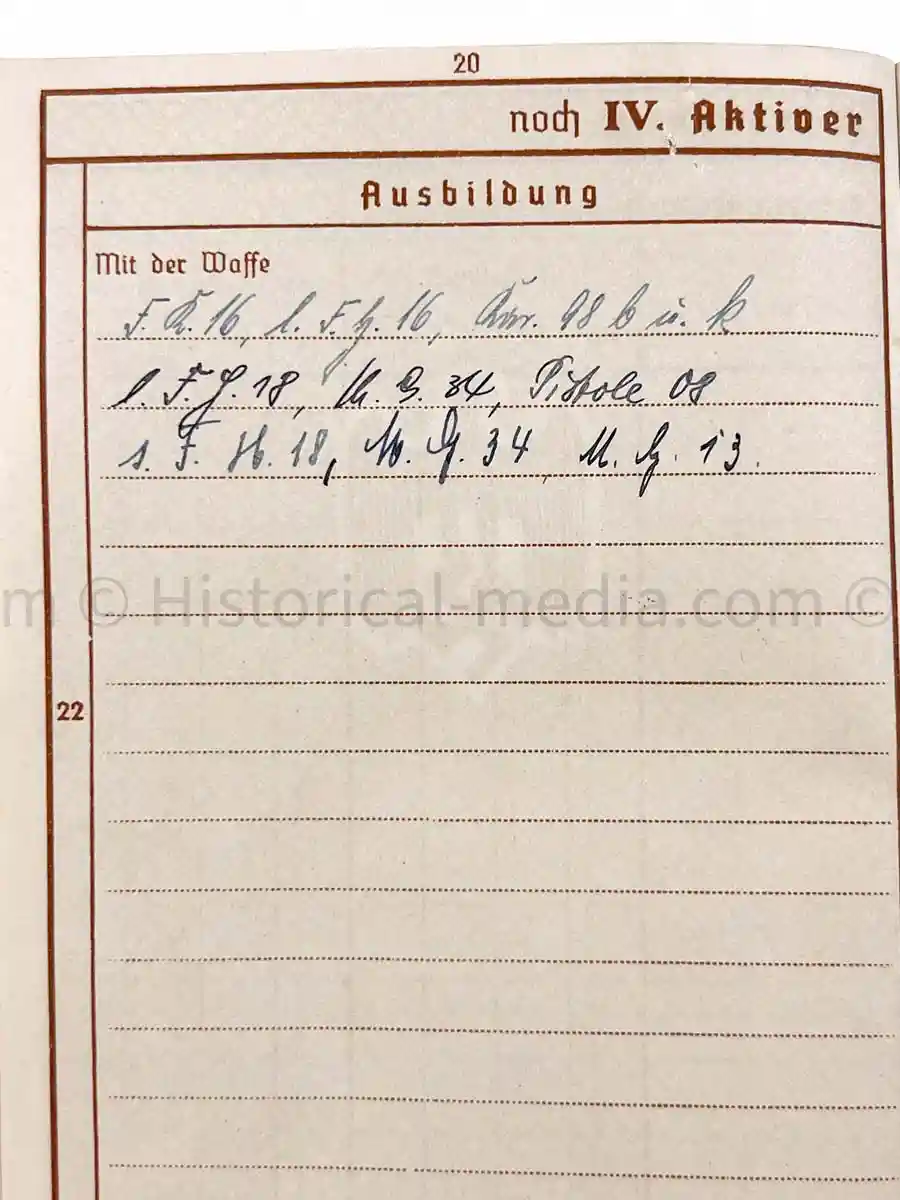 20
noch IV. Aktiver
Ausbildung
Mit der Waffe
F. K. 16, l. F. H. 16, Kar. 98 b u. k
l. F. H. 18, M. G. 34, Pistole 08
s. F. H. 18, M. G. 34, M. G. 13.
m © Historical-media.com ©
22